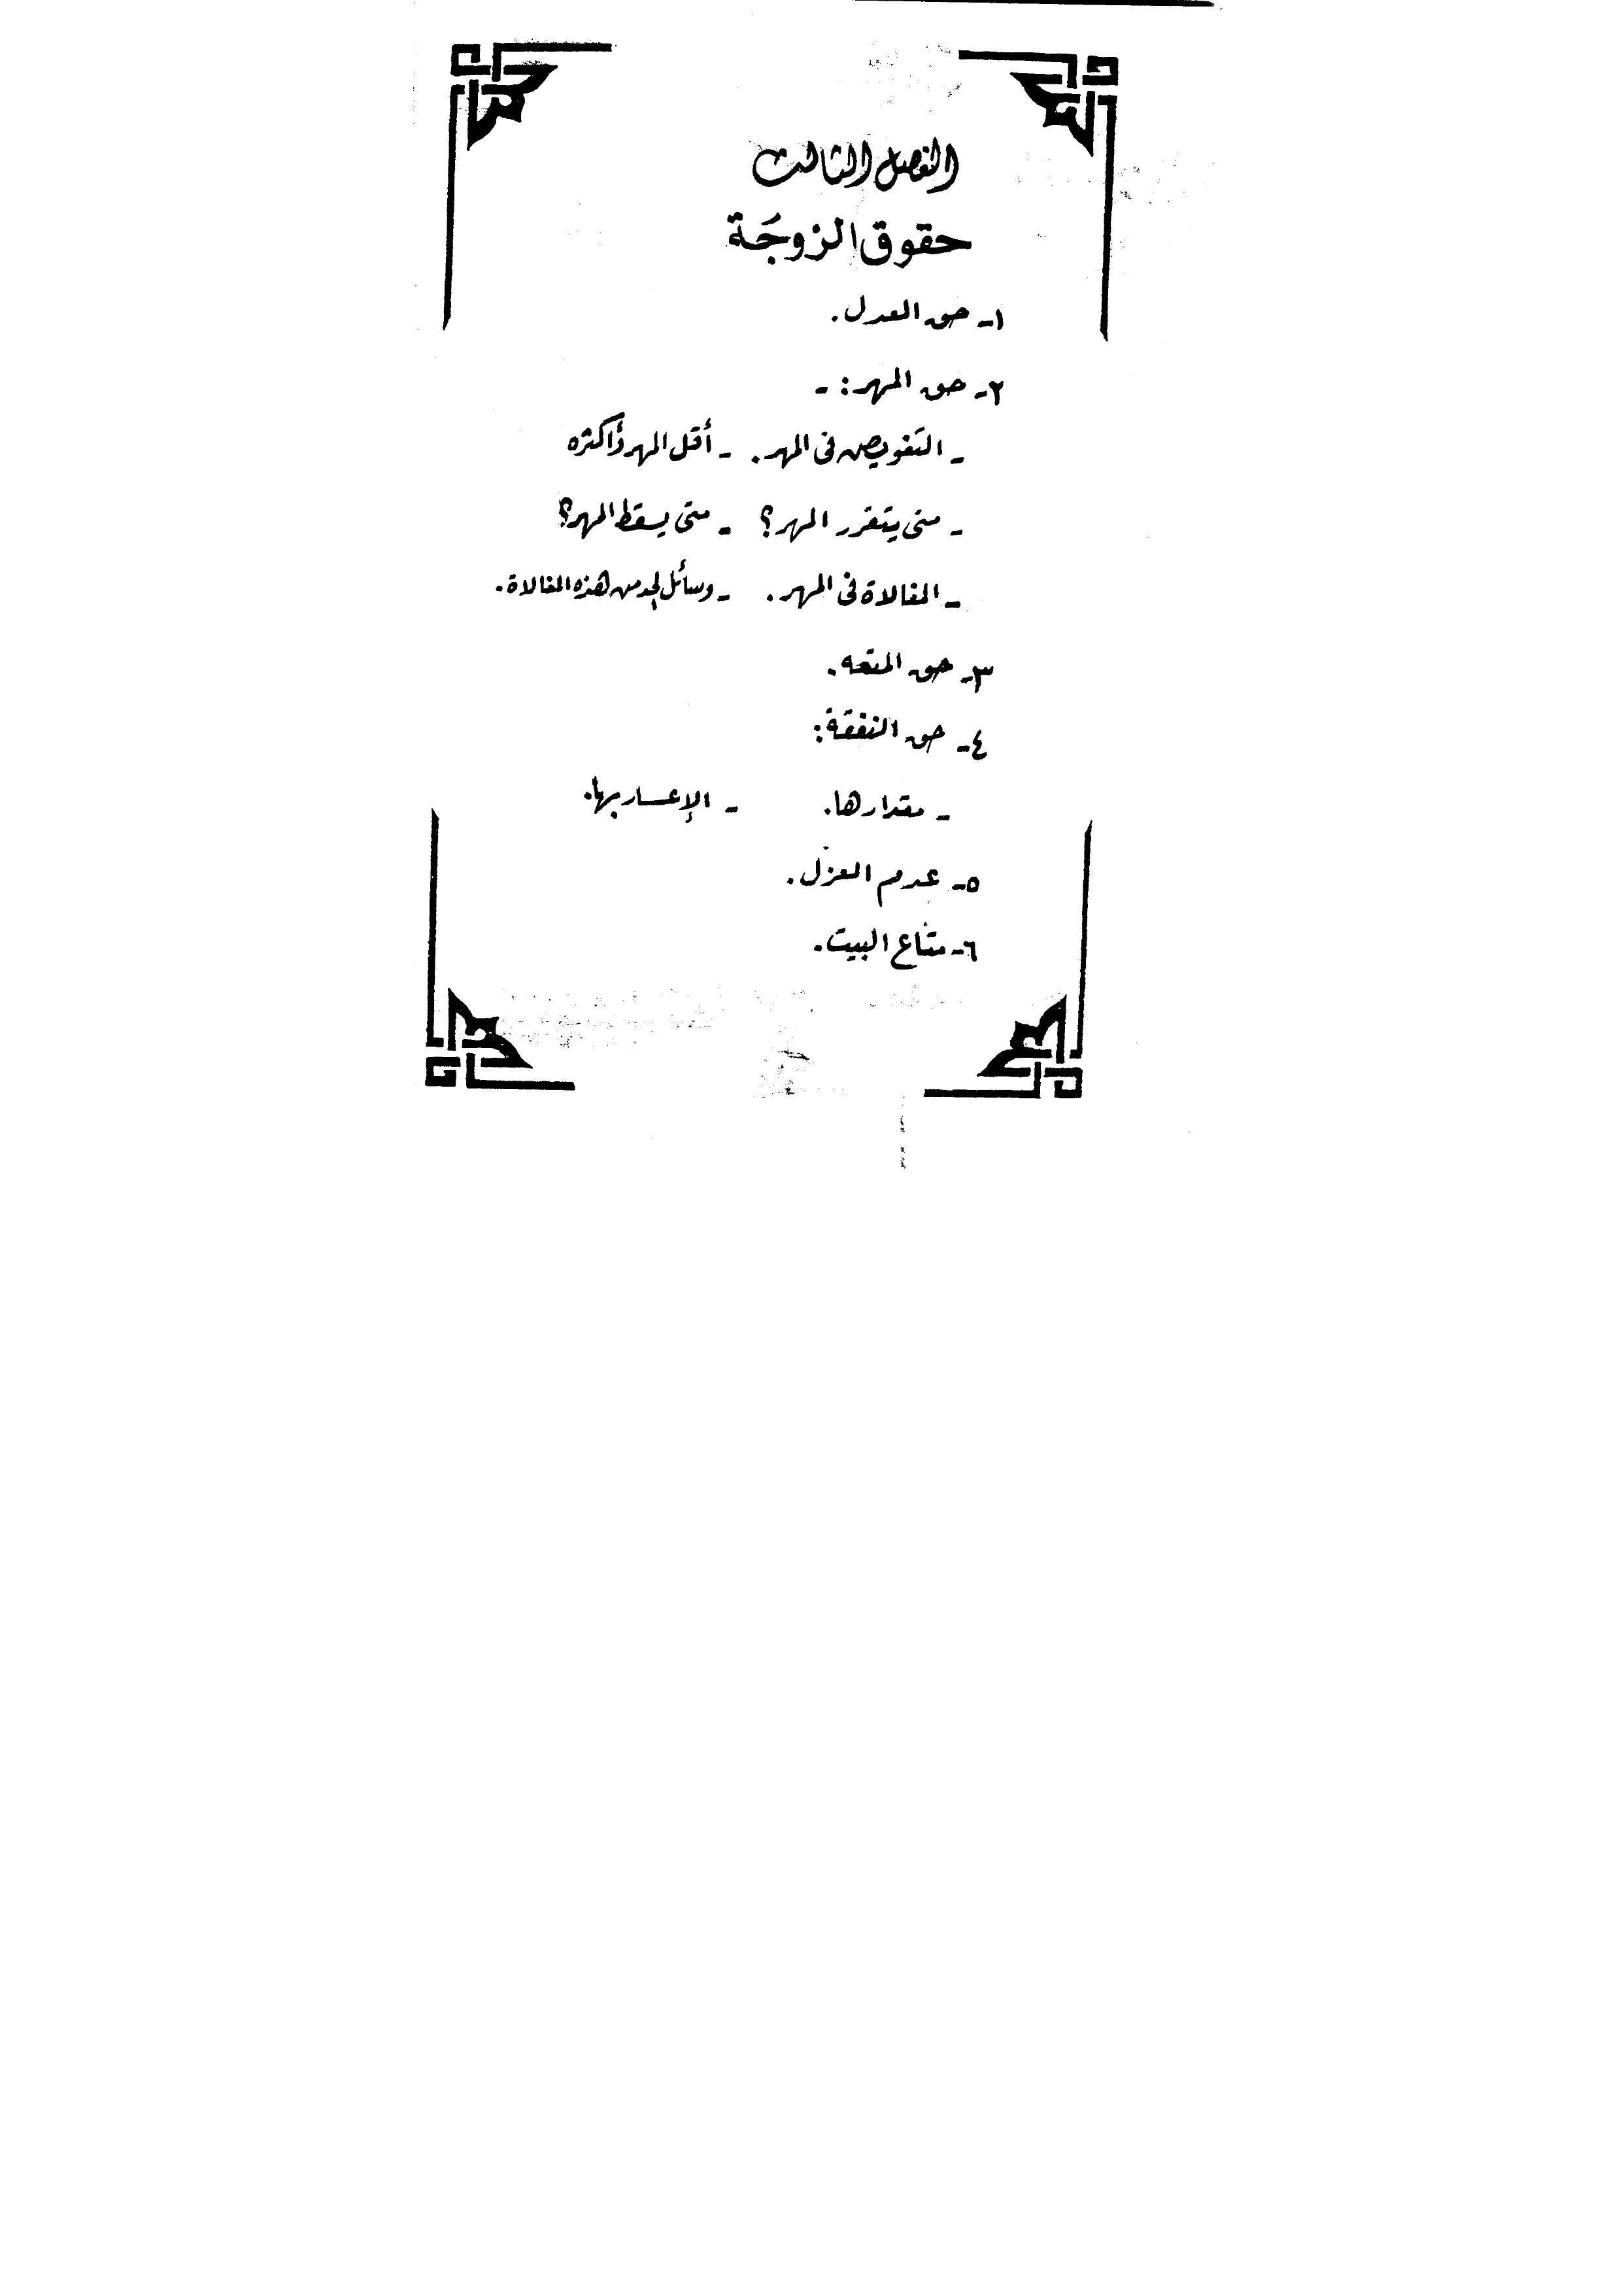 الفصل الثالث
حقوق الزوجَة
١- حق العدل.
٢- حق المهر: -
- التفويض فى المهر. - أقل المهر وأكثره
- متى يتقرر المهر؟ - متى يسقط المهر؟
- المغالاة فى المهر. - وسائل الحد من هذه المغالاة.
٣- حق المتعه.
٤- حق النفقة:
- مقدارها. - الإعسار بها.
٥- عدم العزل.
٦- متاع البيت.